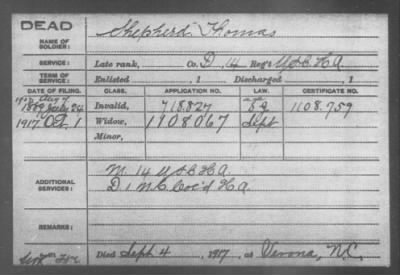 DEAD
NAME OF SOLDIER: Shepherd Thomas
SERVICE: Late rank, Co. D, 14 Reg't U.S.C.H.A.
TERM OF SERVICE: Enlisted , 1 Discharged , 1
DATE OF FILING. CLASS. APPLICATION NO. LAW. CERTIFICATE NO.
July 24 Invalid, 718827 1108.759
1917 Oct. 1 Widow, 1108067 Sept
Minor,
ADDITIONAL SERVICES: M. 14 U.S.C.H.A.
D 1 N.C. Col'd H.A.
REMARKS:
Died Sept. 4, 1917, at Verona, N.C.